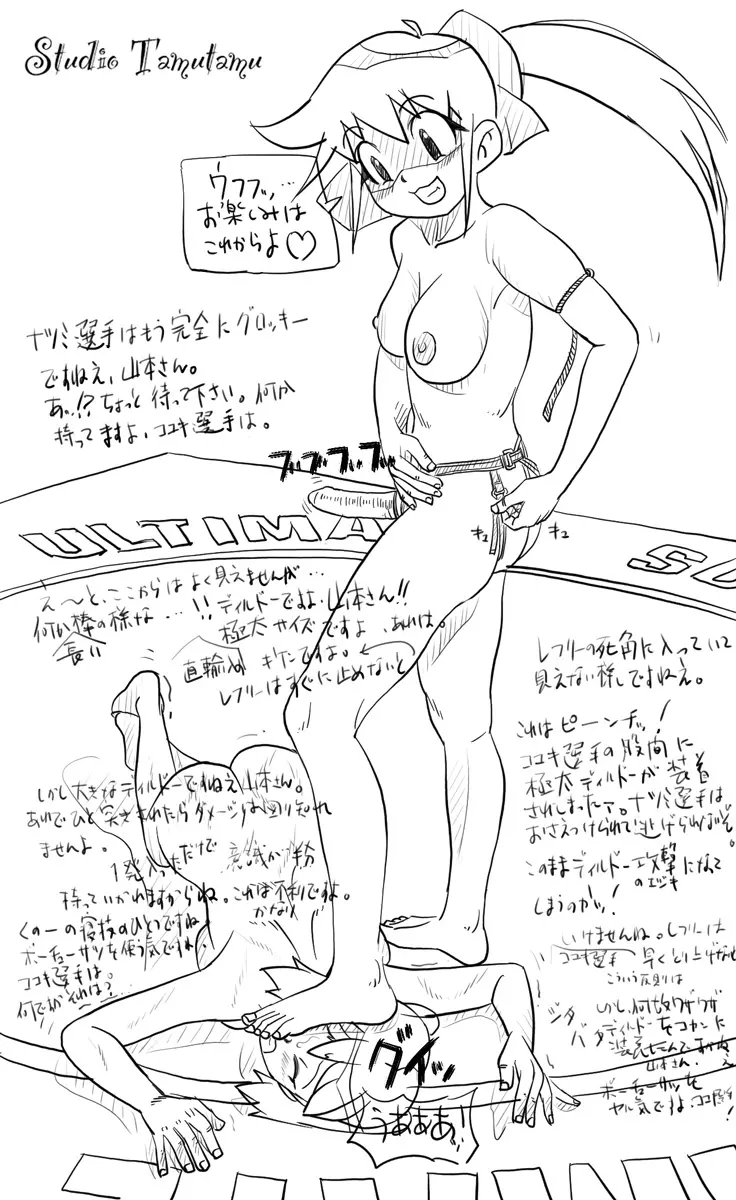 Studio Tamutamu
ウフフッ,…
お楽しみは
これからよ♡
ナツミ選手はもう完全にグロッキー
ですねえ、山本さん。
あっ!?ちょっと待って下さい。何か
持ってますよ、ココキ選手は。
ブ,ブ,ブ,ブ,…
ULTIMA
SU
キュ
キュ
え〜と、ここからはよく見えませんが…
何か棒の様な…!!ディルドーですよ、山本さん!!
長い
極太サイズですよ、あれは。
直輸入の
キケンですよ。
レフリーはすぐに止めないと
レフリーの死角に入っていて
見えない様しですねえ。
これはピーンチッ!
ココキ選手の股間に
極太ディルドーが装着
されしまったァ。ナツミ選手は
おさえつけられて逃げられないぞ。
このままディルドー攻撃になって
のエジキ
しまうのかッ!
しかし大きなディルドーですねえ山本さん。
あれでひと突きされたらダメージは図り知れ
ませんよ。
1発入っただけで
意識が
持っていかれますからね。これは不利ですよ。
かなり
くの一の寝技のひとつですね
ボーチューサツを使う気ですね
ココキ選手は。
何ですかそれは?…
いけませんね。レフリーは
ココキ選手
早くとり上げないと
こういう反則は
しかし何故ワザワザ
ディルドーをコカンに
山本さん
ボーチューサツを
ヤル気ですよ、ココキ選手
!
ジタ
バタ
ダイ
うあああ!